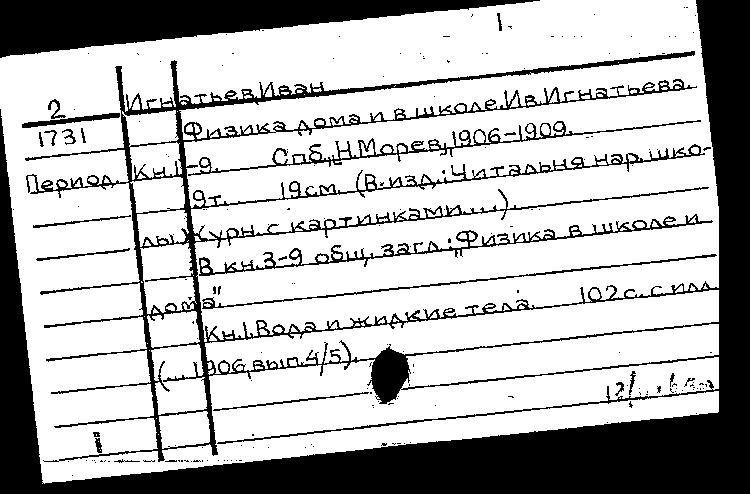 1.
2 Игнатьев, Иван
1731 Физика дома и в школе. Ив. Игнатьева.
Период. Кн. 1-9. Спб, "Н. Морев", 1906-1909.
9т. 19см. (В изд.: Читальня нар. шко-
лы. Журн. с картинками....).
В кн. 3-9 общ. загл.: "Физика в школе и
дома".
Кн. 1. Вода и жидкие тела. 102 с. с илл
(... 1906, вып. 4/5).